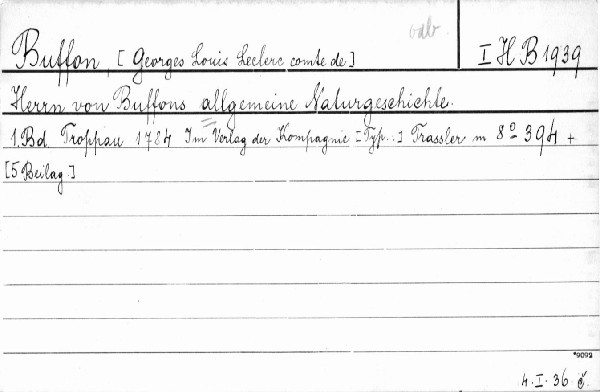 odb.
Buffon, [Georges Louis Leclerc comte de] I H B 1939
Herrn von Buffons allgemeine Naturgeschichte.
1. Bd. Troppau 1784 Im Verlag der Kompagnie [Typ.:] Trassler m 8º 394 +
[5 Beilag.]
*9092
4. I. 36.